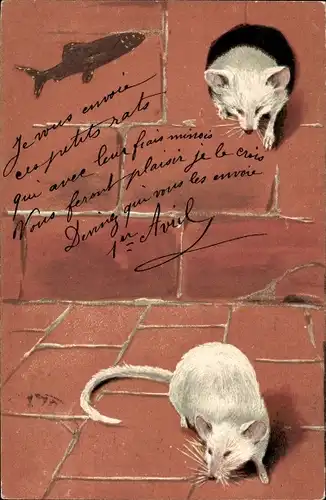 Je vous envoie
ces petits rats
qui avec leur frais minois
Vous feront plaisir je le crois
Deviny qui vous les envoie
1er Avril